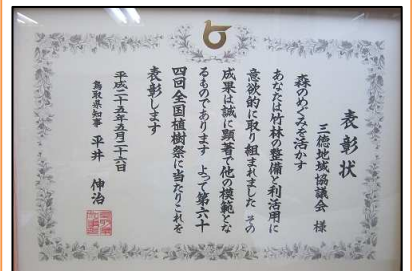 表彰状
三徳地域協議会 様
森のめぐみを活かす
あなたは竹林の整備と利活用に
意欲的に取り組まれました その
成果は誠に顕著で他の模範とな
るものであります よって第六十
四回全国植樹祭に当たりこれを
表彰します
平成二十五年五月二十六日
鳥取県知事 平井 伸治